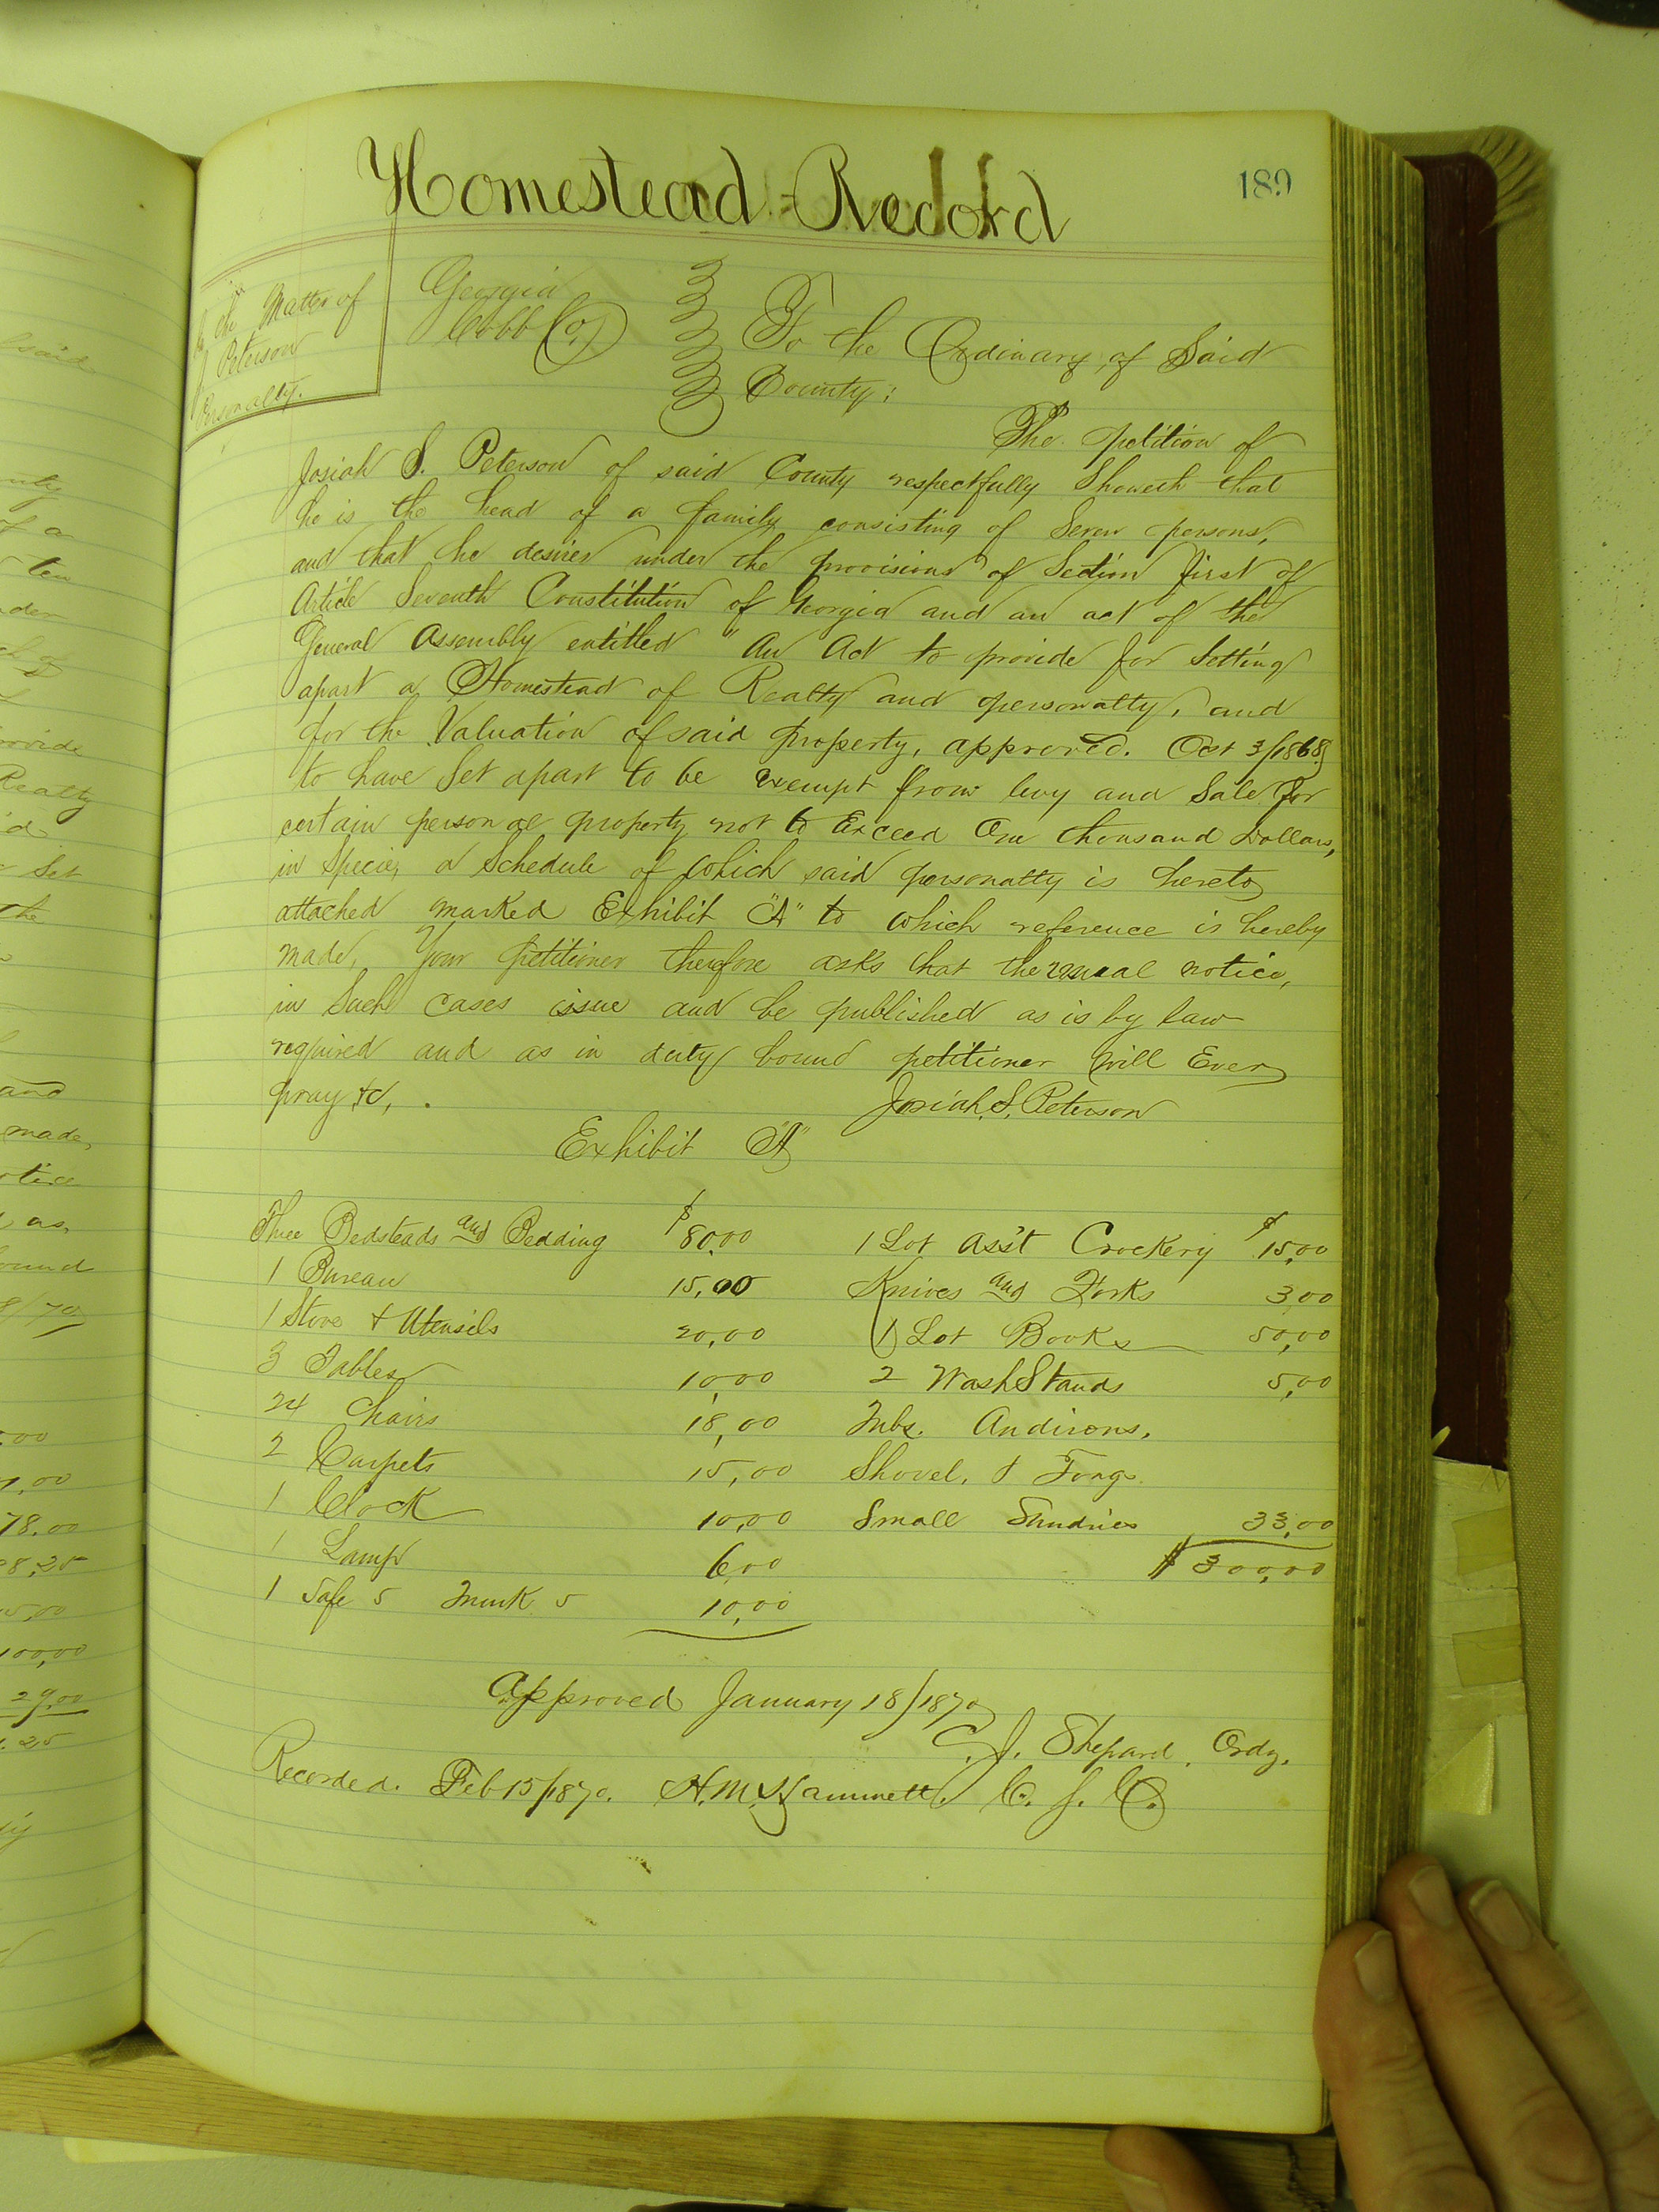 Homestead - Record
189
In the Matter of
J Peterson
Personalty.
Georgia
Cobb Co.
To the Ordinary of Said
County:
The petition of
Josiah S. Peterson of said County respectfully Showeth that
he is the head of a family consisting of Seven persons,
and that he desires under the provisions of Section first of
Article Seventh Constitution of Georgia and an act of the
General Assembly entitled "An Act to provide for Setting
apart a Homestead of Realty and personalty, and
for the Valuation of said property, approved. Oct 3/1868,
to have Set apart to be exempt from levy and Sale for
certain personal property not to Exceed One thousand Dollars,
in Specie, a Schedule of which said personalty is hereto
attached marked Exhibit "A" to which reference is hereby
made, Your petitioner therefore asks that the usual notice,
in Such cases issue and be published as is by law
required and as in duty bound petitioner will Ever
pray &c,.
Josiah. S. Peterson
Exhibit "A"
Three Bedsteads and Bedding $80,00
1 Lot Ass't Crockery $15,00
1 Bureau 15,00
Knives and Forks 3,00
1 Stove & Utensils 20,00
1 Lot Books 50,00
3 Tables 10,00
2 Wash Stands 5,00
24 Chairs 18,00
Tubs. Andirons,
2 Carpets 15,00
Shovel, & Tongs.
1 Clock 10,00
Small Sundries 33,00
1 Lamp 6,00
$300,00
1 Safe 5 Trunk 5 10,00
Approved January 18/1870
C. J. Shepard, Ordy.
Recorded. Feb 15/1870. H. M. Hammett. C. S. C.
said
nty
of a
ten
nder
rovide
Realty
Set
the
and
made,
otice
as,
ound
/70
,00
,00
78.00
8,25
5,00
100,00
29.00
.25